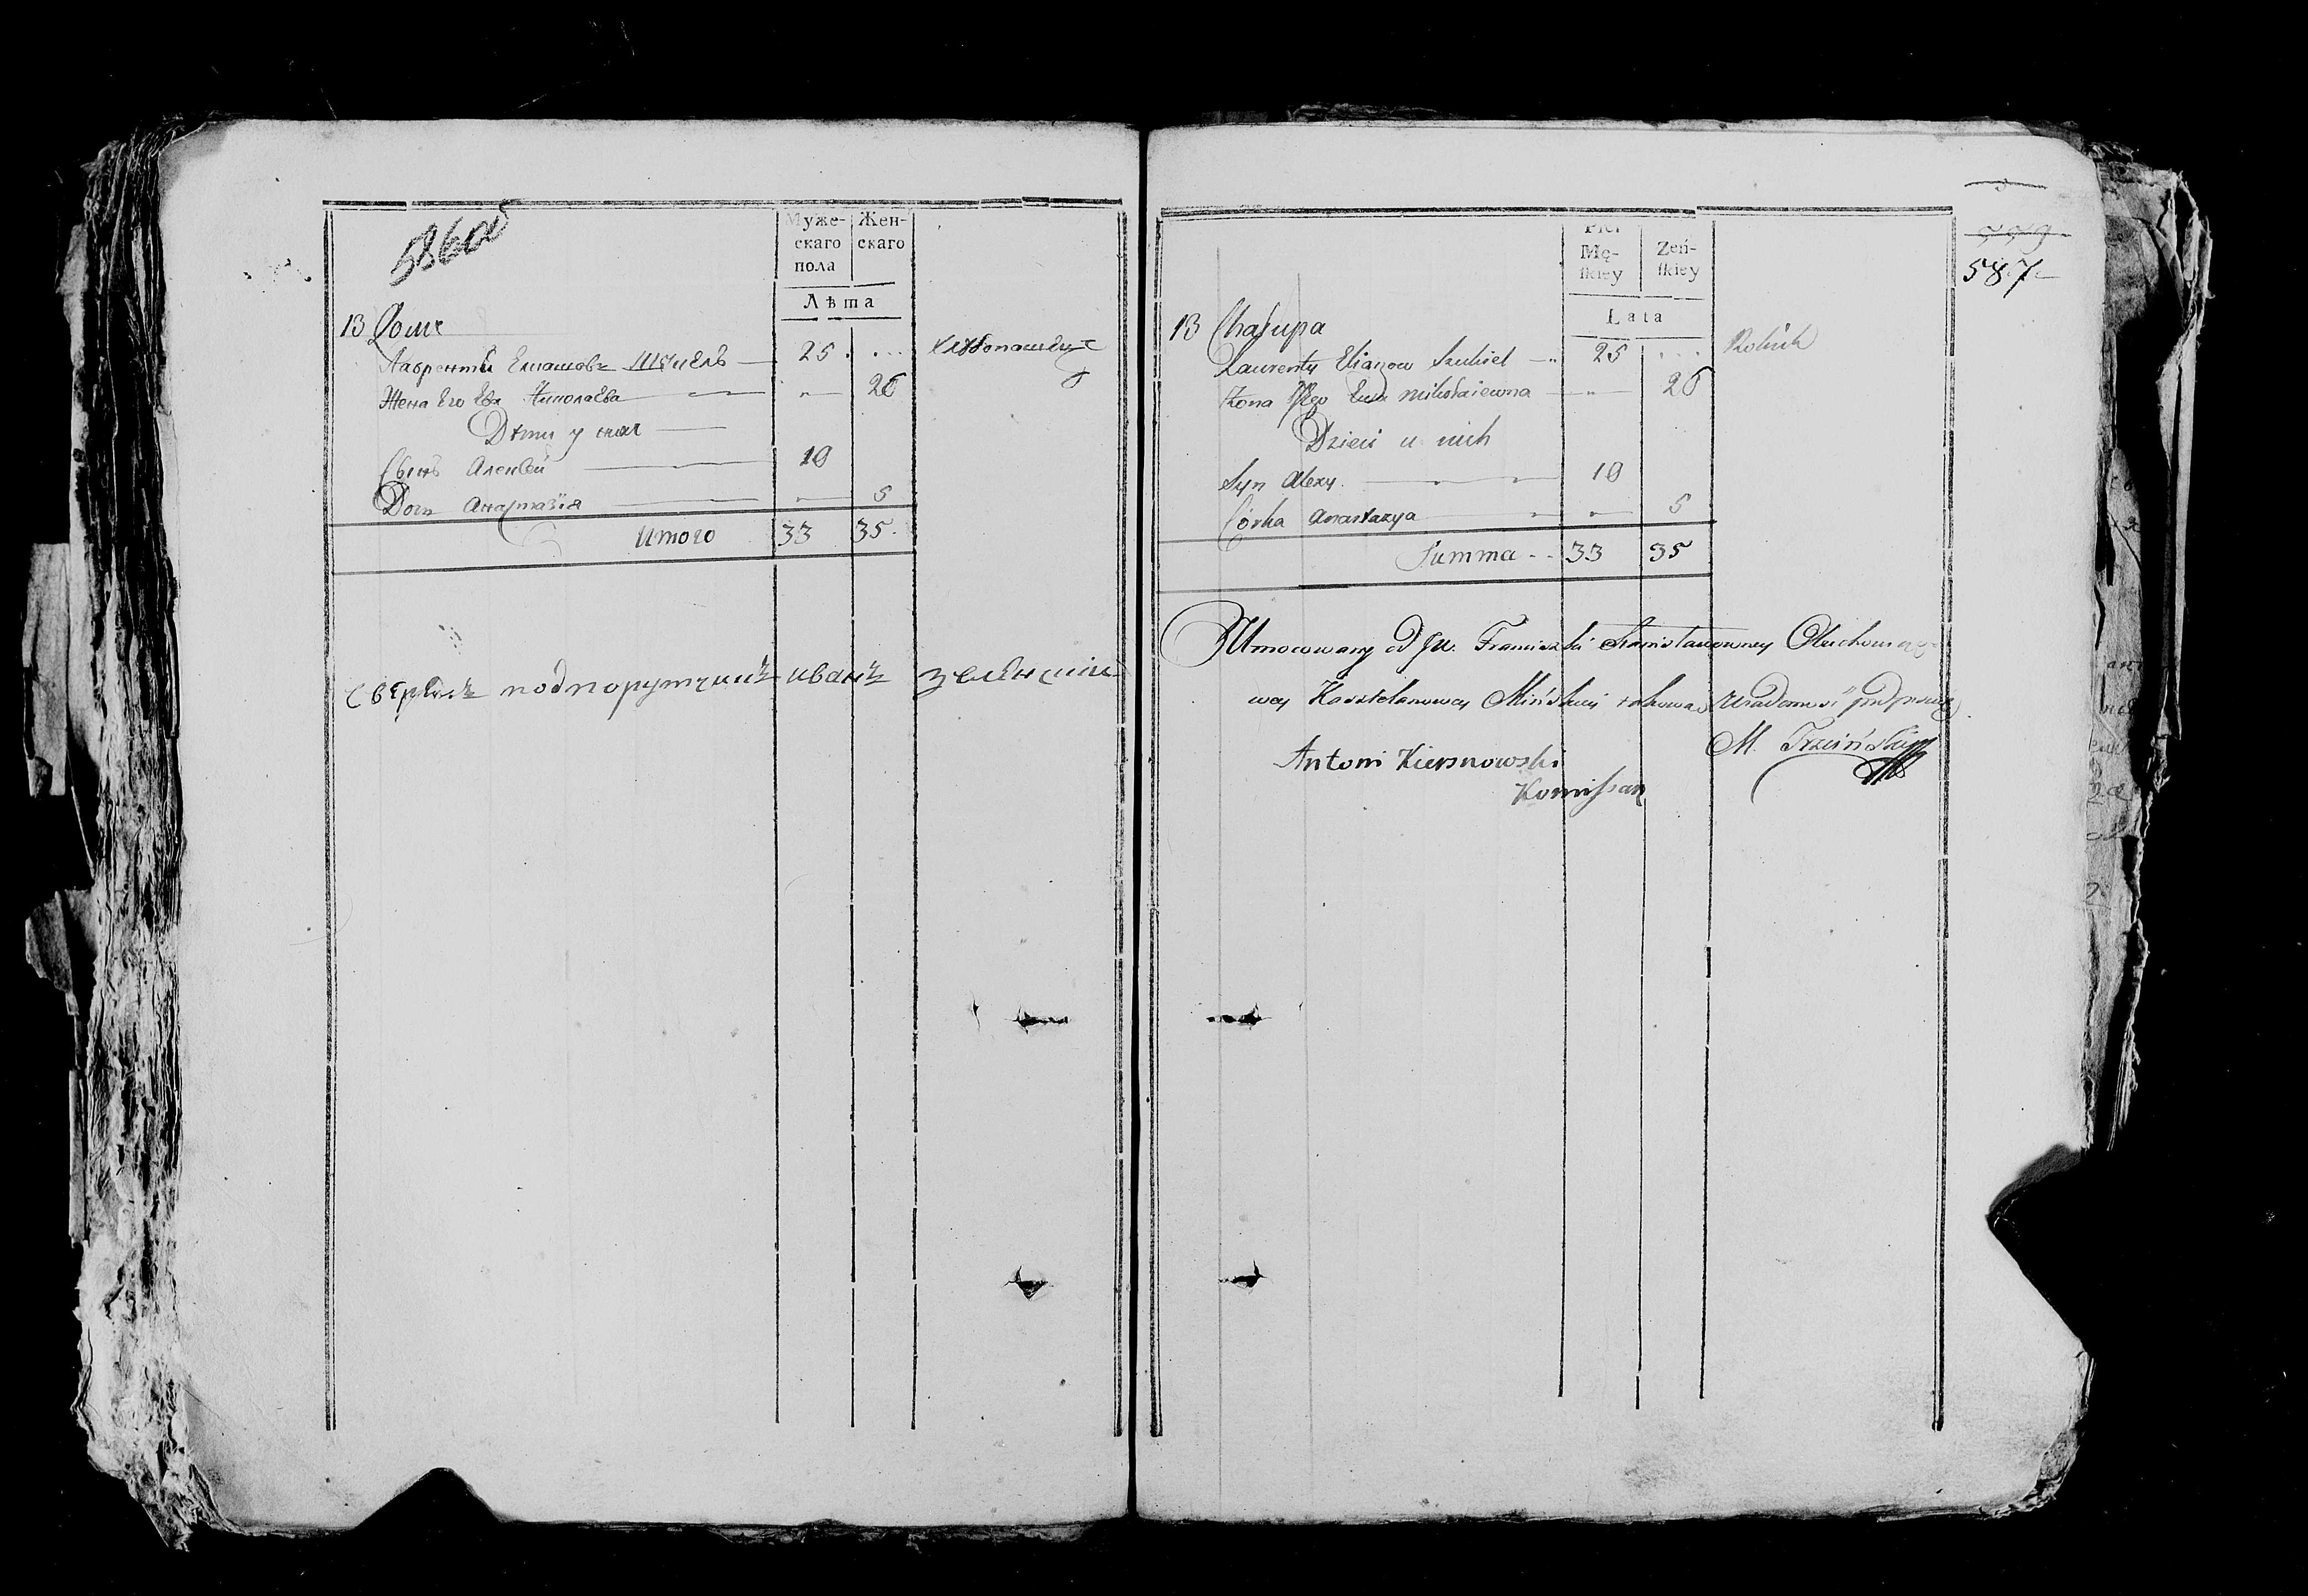 586об
Муже- Жен-
скаго скаго
пола
Лѣта
13 Домъ
Лаврентій Елиашовъ Шукель 25 хлебопашецъ
Жена Его Ева Николаева 26
Дѣти у нихъ
Сынъ Алексей 10
Дочь Анастазія 5
Итого 33 35
сверялъ подпорутчикъ иванъ
587
Płci
Mę- Żeń-
skiey skiey
Lata
13 Chałupa
Laurenty Eliaszow Szukiel 25 Rolnik
Żona Jego Ewa Mikołaiewna 26
Dzieci u nich
Syn Alexy 10
Córka Anastazya 5
Summa 33 35
Umocowany od JW. Franciszki Stanisławowney
wey Kasztelanowey Mińskiey
M.
Antoni Kiersnowski
Komissarz